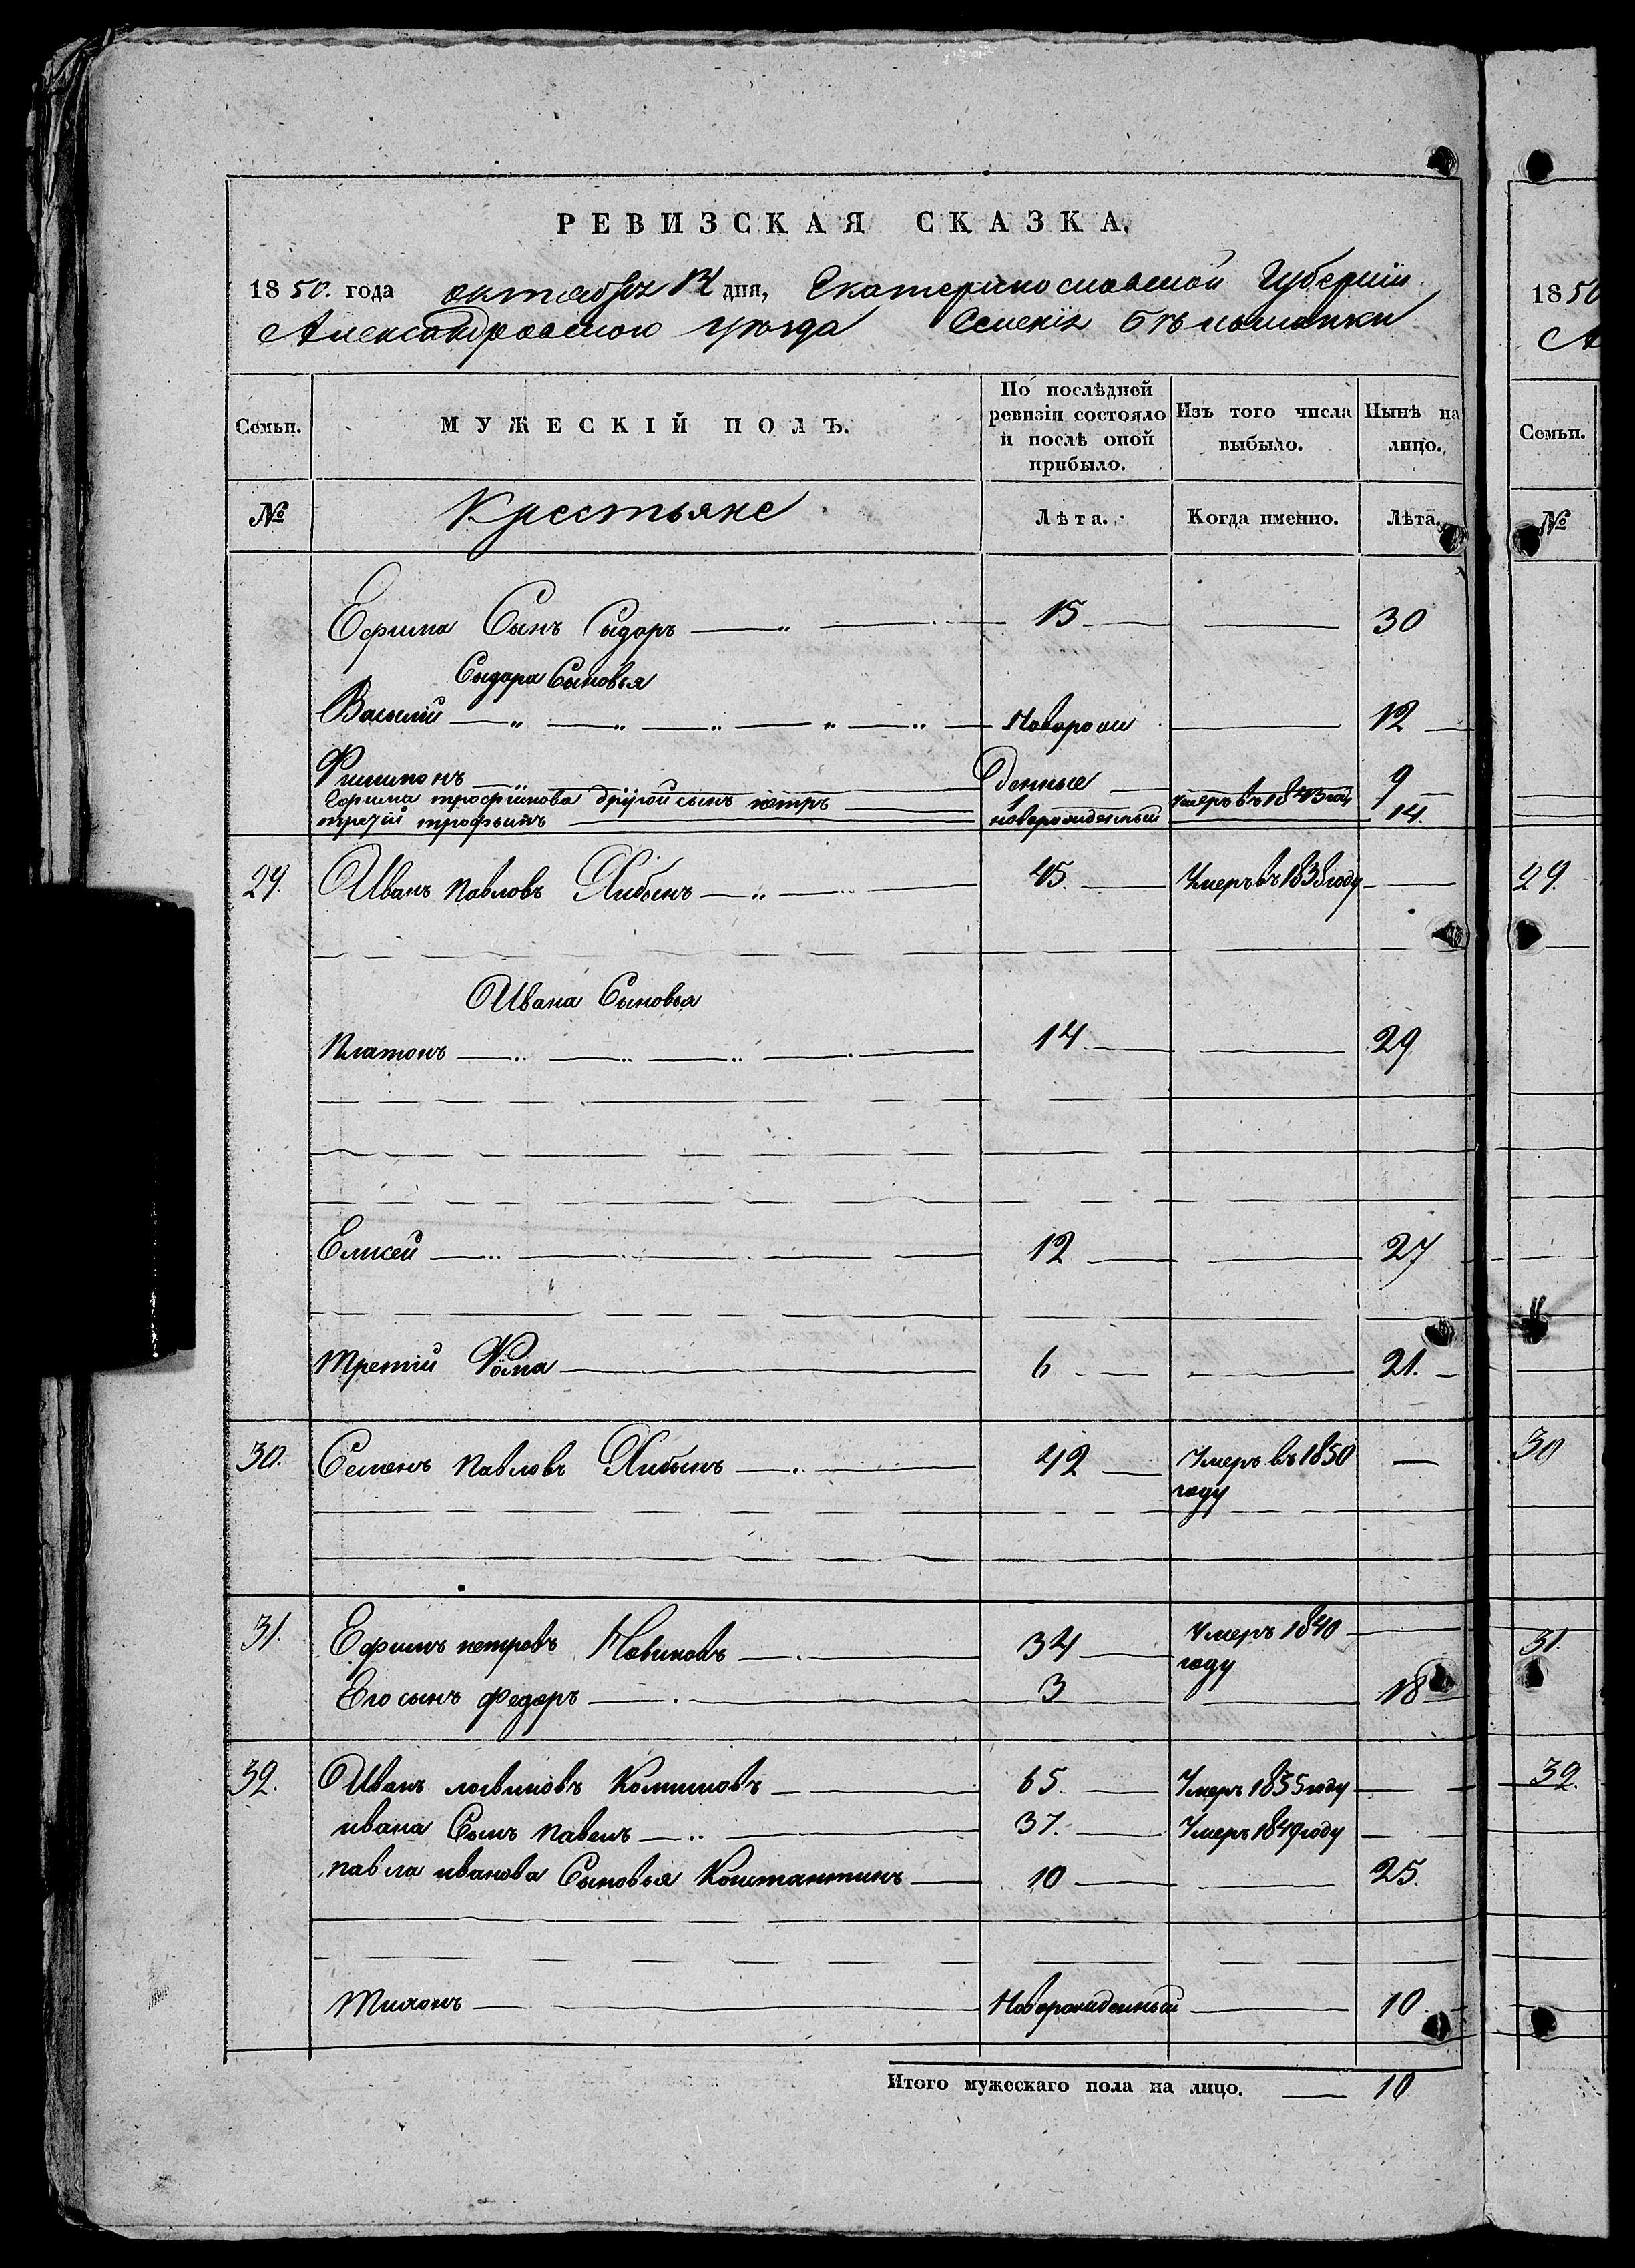 РЕВИЗСКАЯ СКАЗКА.
1850. года октября 12 дня, Екатеринославской Губерніи
Александровскаго уѣзда Селенія Бѣломанки
Семьи. МУЖЕСКІЙ ПОЛЪ. По послѣдней ревизіи состояло и послѣ оной прибыло. Изъ того числа выбыло. Нынѣ на лицо.
№ Крестьяне Лѣта. Когда именно. Лѣта.
Ефима Сынъ Сыдоръ 15 30
Сыдора Сыновья
Василій Новорож 12
Филимонъ денные 9
Ефима трофимова другой сынъ петръ 1 умеръ въ 1843 году
третій трофымъ новорожденный 14.
29. Иванъ Павловъ 45. Умеръ въ 1838 году
Ивана Сыновья
Платонъ 14 29
Елисей 12 27
третій Фома 6 21.
30. Семенъ Павловъ 42 Умеръ въ 1850
году
31. Ефимъ петровъ Новиковъ 34 Умеръ 1840
году
Его сынъ Федоръ 3 18
32. Иванъ логвиновъ 65. Умеръ 1835 году
ивана Сынъ павелъ 37. Умеръ 1849 году
павла иванова Сыновья Константинъ 10 25.
Тихонъ Новорожденный 10
Итого мужескаго пола на лицо. 10
1850
А
Семьи.
№
29.
30
31.
32.